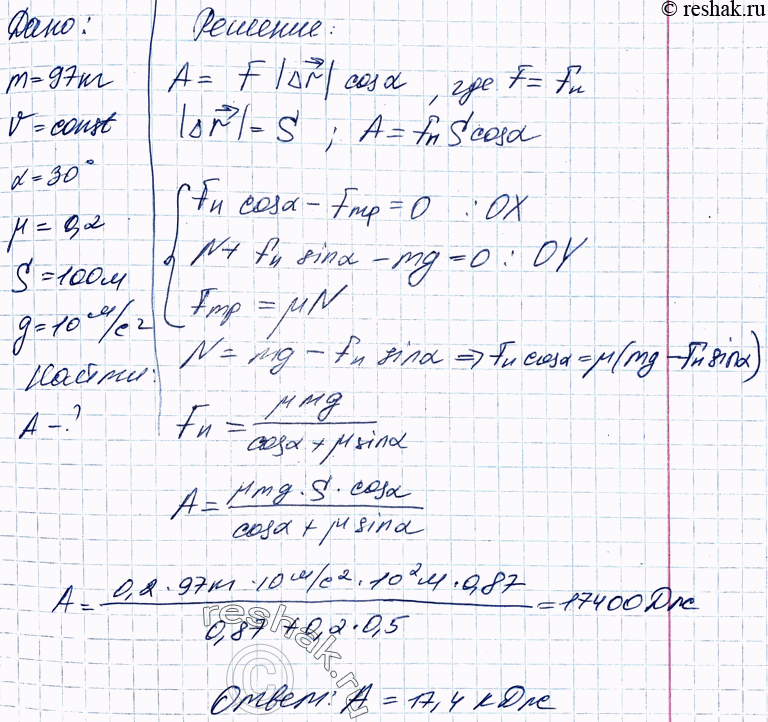 © reshak.ru
Дано:
m = 97 кг
V = const
α = 30°
μ = 0,2
S = 100 м
g = 10 м/с²
Найти:
A - ?
Решение:
A = F |Δr⃗| cosα, где F = Fн
|Δr⃗| = S ; A = Fн S cosα
{ Fн cosα - Fтр = 0 : OX
N + Fн sinα - mg = 0 : OY
Fтр = μN
N = mg - Fн sinα ⇒ Fн cosα = μ(mg - Fн sinα)
Fн = μmg / (cosα + μ sinα)
A = μmg · S · cosα / (cosα + μ sinα)
A = 0,2 · 97 кг · 10 м/с² · 10² м · 0,87 / (0,87 + 0,2 · 0,5) = 17400 Дж
reshak.ru
©
Ответ: A = 17,4 кДж